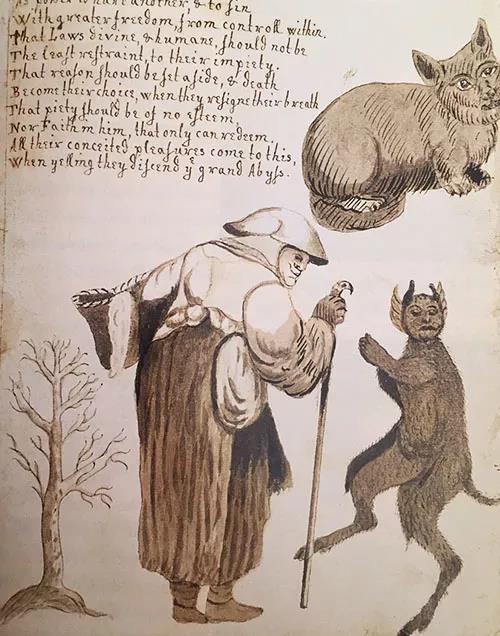 power to hurt another, & to sin
With greater freedom from controll within.
That Laws divine, & humane, should not be
The least restraint, to their impiety.
That reason should be set aside, & death
Become their choice, when they resigne their breath
That piety should be of no esteem,
Nor Faith in him, that only can redeem
All their conceited pleasures come to this,
When yelling they discend yᵉ grand Abyss.